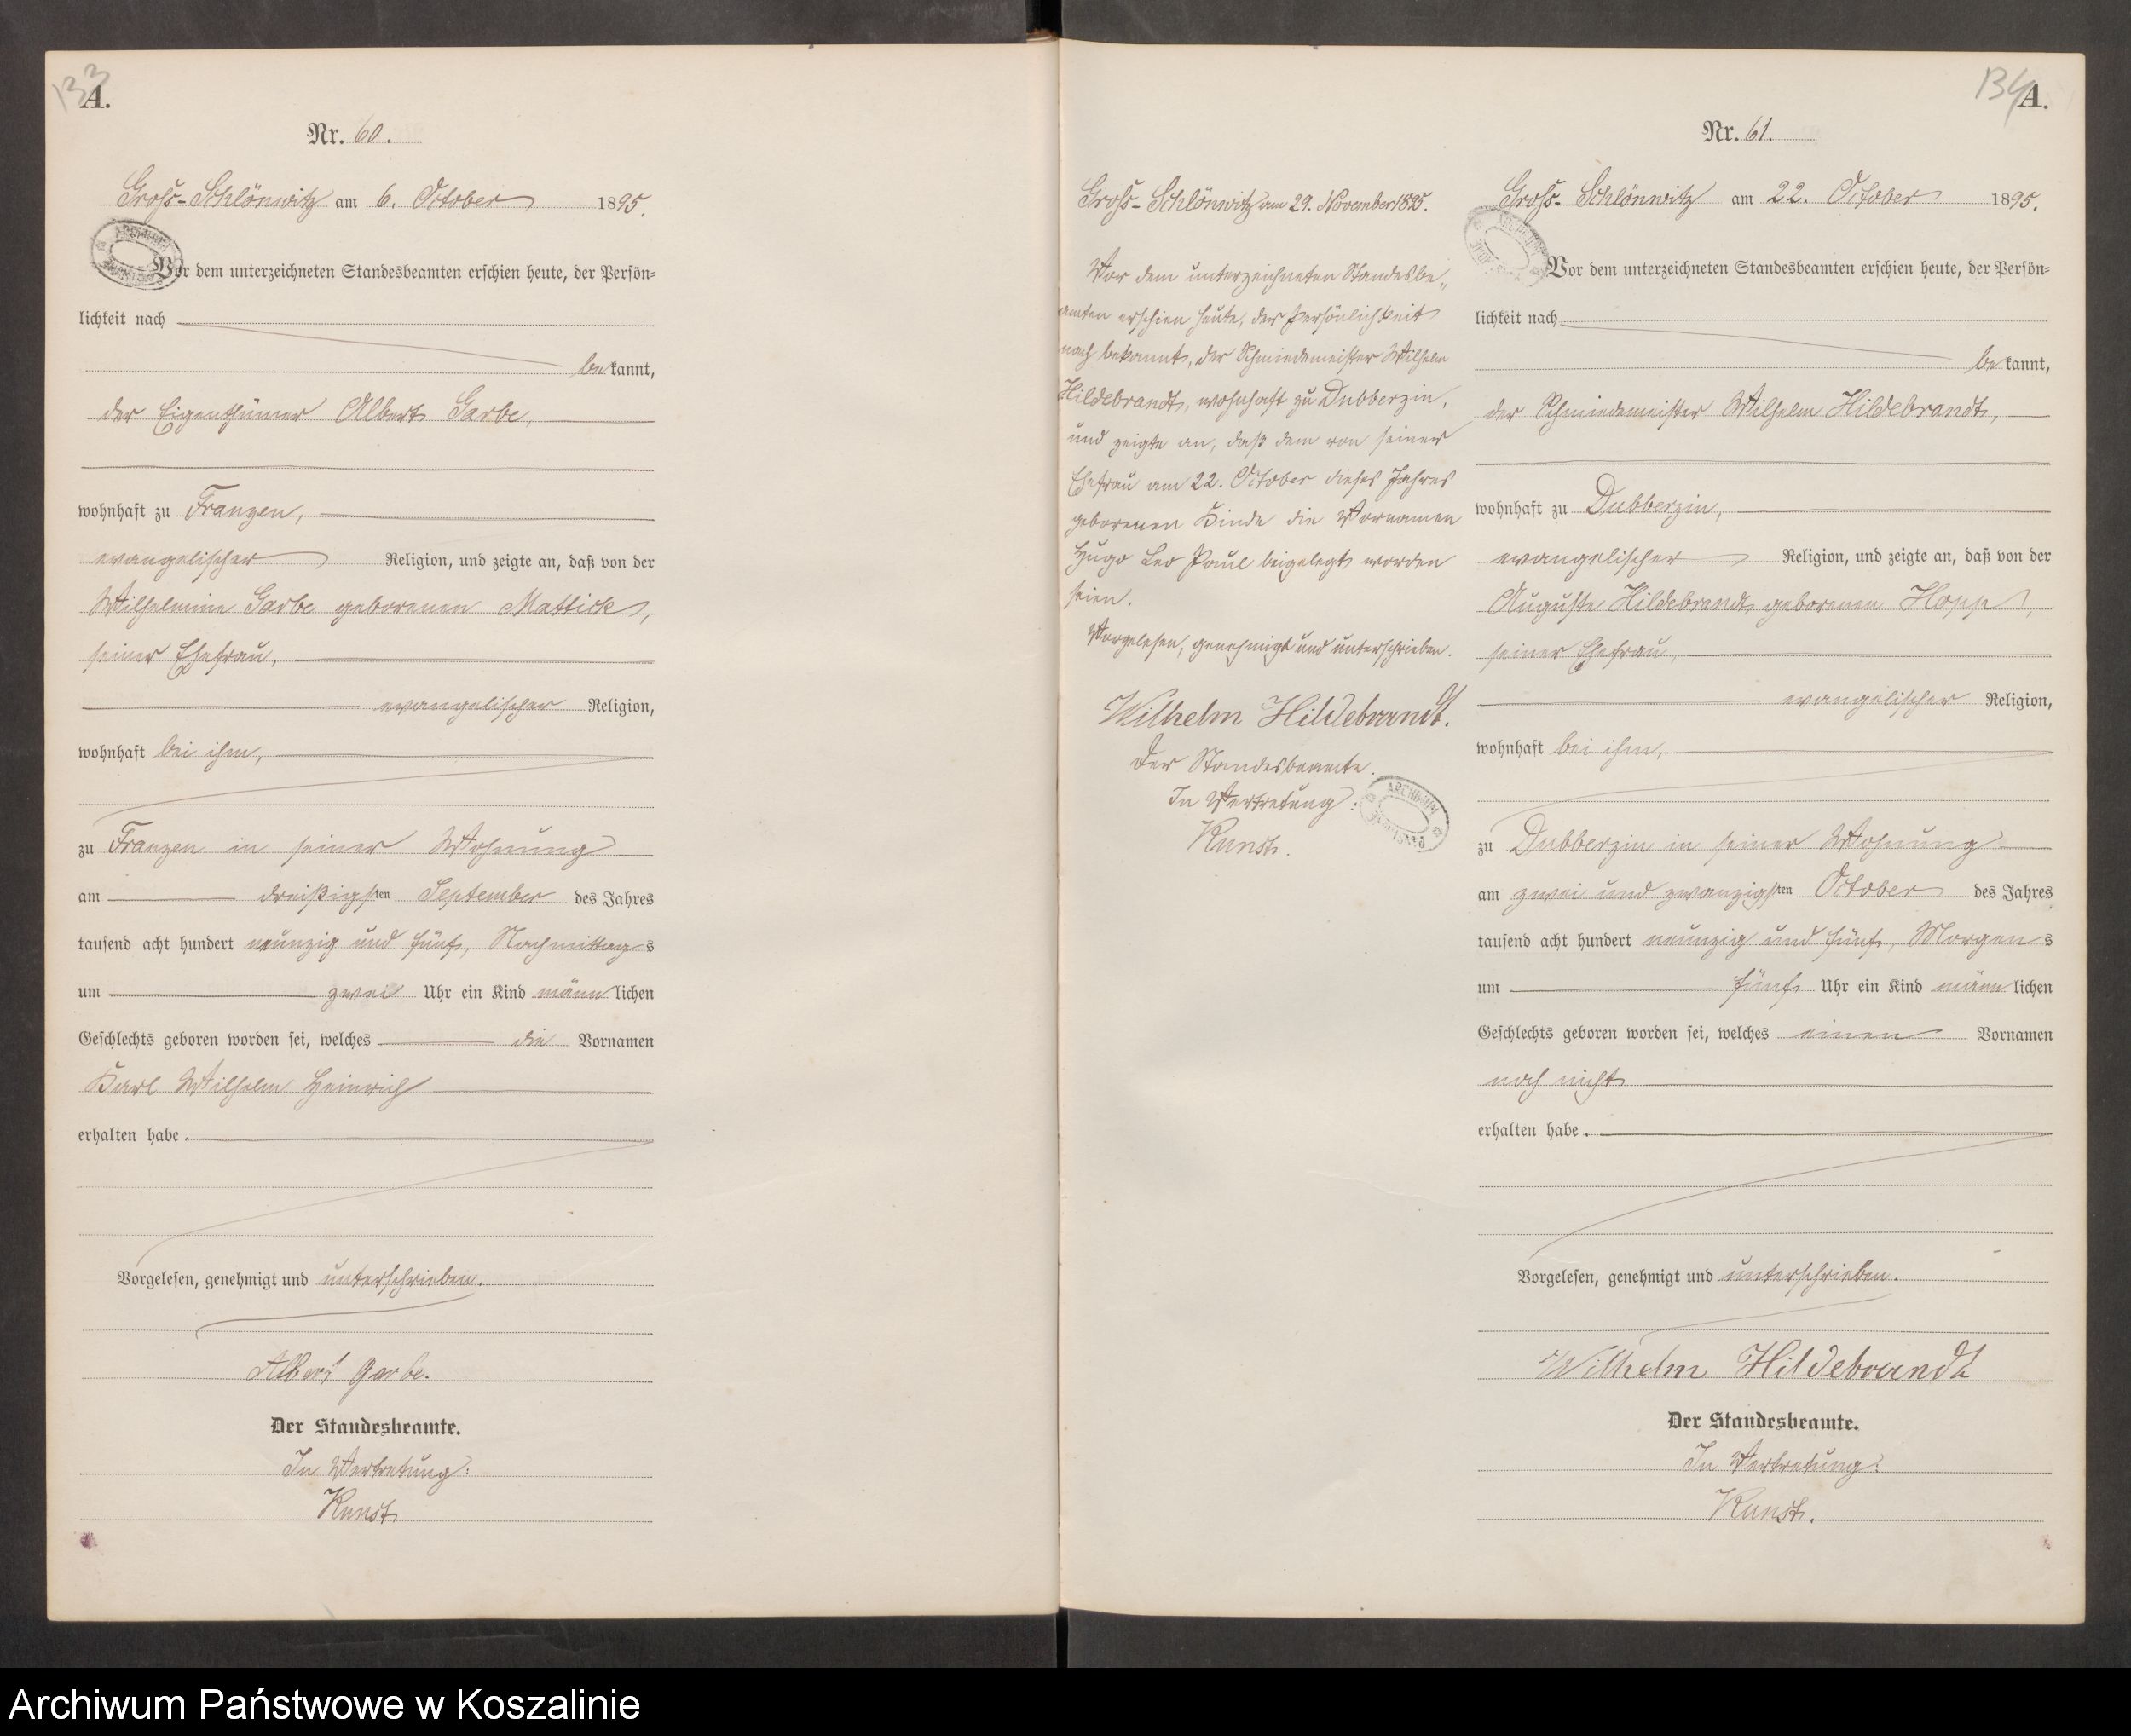 133
A.
Nr. 60.
Groß-Schlönwitz am 6. October 1895.
Vor dem unterzeichneten Standesbeamten erschien heute, der Persön=
lichkeit nach
bekannt,
der Eigenthümer Albert Garbe,
wohnhaft zu Franzen,
evangelischer Religion, und zeigte an, daß von der
Wilhelmine Garbe geborenen Mattick,
seiner Ehefrau,
evangelischer Religion,
wohnhaft bei ihm,
zu Franzen in seiner Wohnung
am dreißigsten September des Jahres
tausend acht hundert neunzig und fünf, Nachmittags
um zwei Uhr ein Kind männlichen
Geschlechts geboren worden sei, welches die Vornamen
Karl Wilhelm Heinrich
erhalten habe.
Vorgelesen, genehmigt und unterschrieben.
Albert Garbe.
Der Standesbeamte.
In Vertretung:
Kunst
Groß-Schlönwitz am 29. November 1895.
Vor dem unterzeichneten Standesbe„
amten erschien heute, der Persönlichkeit
nach bekannt, der Schmiedemeister Wilhelm
Hildebrandt, wohnhaft zu Dubberzin,
und zeigte an, daß dem von seiner
Ehefrau am 22. October dieses Jahres
geborenen Kinde die Vornamen
Hugo Leo Paul beigelegt worden
seien.
Vorgelesen, genehmigt und unterschrieben.
Wilhelm Hildebrandt.
Der Standesbeamte.
In Vertretung:
Kunst.
ARCHIWUM
134
A.
Nr. 61.
Groß-Schlönwitz am 22. October 1895.
Vor dem unterzeichneten Standesbeamten erschien heute, der Persön=
lichkeit nach
bekannt,
der Schmiedemeister Wilhelm Hildebrandt,
wohnhaft zu Dubberzin,
evangelischer Religion, und zeigte an, daß von der
Auguste Hildebrandt geborenen Hopp,
seiner Ehefrau,
evangelischer Religion,
wohnhaft bei ihm,
zu Dubberzin in seiner Wohnung
am zwei und zwanzigsten October des Jahres
tausend acht hundert neunzig und fünf, Morgens
um fünf Uhr ein Kind männlichen
Geschlechts geboren worden sei, welches einen Vornamen
noch nicht
erhalten habe.
Vorgelesen, genehmigt und unterschrieben.
Wilhelm Hildebrandt
Der Standesbeamte.
In Vertretung:
Kunst.
Archiwum Państwowe w Koszalinie